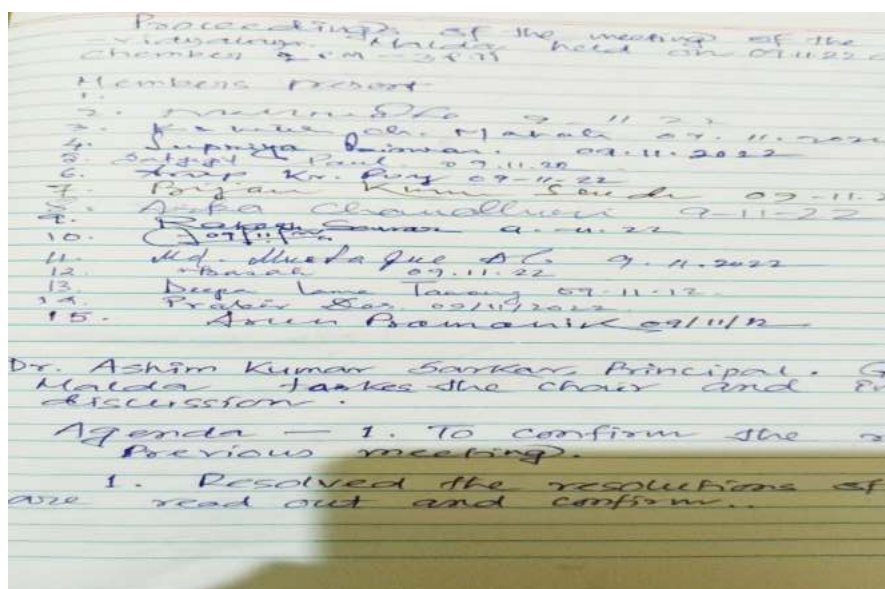 Proceedings of the meeting of the
-vidyalaya. Malda held on 09.11.22
chamber
Members Present
1.
2. 9 11 22
3. Ch. Mahali 09.11.2022
4. Supriya Biswas. 09.11.2022
5. Satyajit Paul. 09.11.20
6. Anup Kr. Roy 09-11-22
7. Kumar 09-11-2
8. Chaudhuri 9-11-22
9. Rakesh Sarkar 9.11.22
10. 09/11/22
11. Md. Mustaque Ali 9.11.2022
12. Basak 09.11.22
13. Deepa Lama Tamang 09-11-12
14. Prabir Das. 09/11/2022
15. Arun Pramanik 09/11/12
Dr. Ashim Kumar Sarkar, Principal. G
Malda takes the chair and
discussion.
Agenda — 1. To confirm the
Previous meeting.
1. Resolved the resolutions of
are read out and confirm..